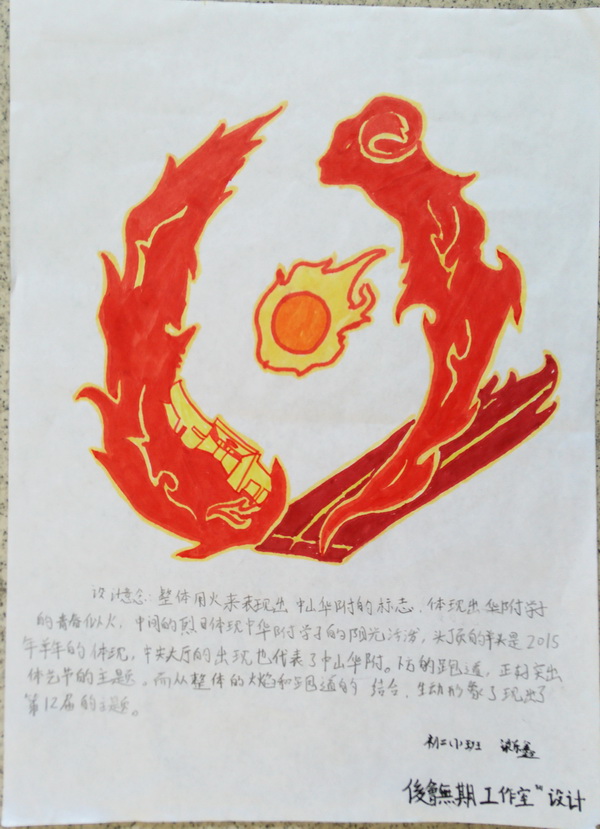 设计意念：整体用火来表现出中山华附的标志，体现出华附学子
的青春似火，中间的烈日体现中华附学子的阳光活泼，头顶的羊头是2015
年羊年的体现，中央大厅的出现也代表了中山华附。下方的跑道，正好突出
体艺节的主题。而从整体的火焰和跑道的结合，生动形象了现出了
第12届的主题。
初二(小)班
後會無期工作室"设计